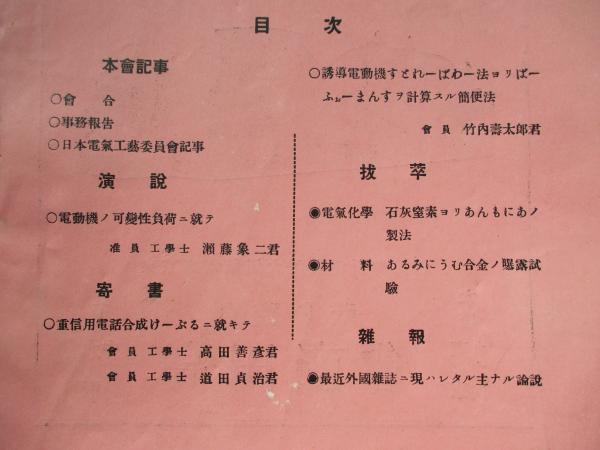 目次
本會記事
○會合
○事務報告
○日本電氣工藝委員會記事
演説
○電動機ノ可變性負荷ニ就テ
准員 工學士 瀬藤象二君
寄書
○重信用電話合成けーぶるニ就キテ
會員 工學士 高田善彦君
會員 工學士 道田貞治君
○誘導電動機すとれーぱわー法ヨリぱー
ふぉーまんすヲ計算スル簡便法
會員 竹内壽太郎君
拔萃
◉電氣化學 石灰窒素ヨリあんもにあノ
製法
◉材料 あるみにうむ合金ノ曝露試
驗
雜報
◉最近外國雜誌ニ現ハレタル主ナル論説